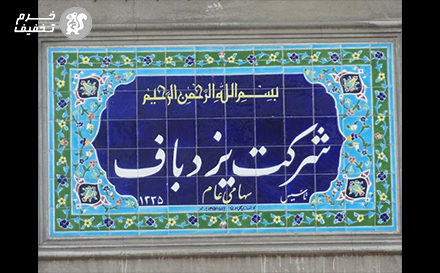 خرم
تخفیف
بسم الله الرحمن الرحیم
شرکت یزدباف
سهامی عام
تاسیس ۱۳۳۵